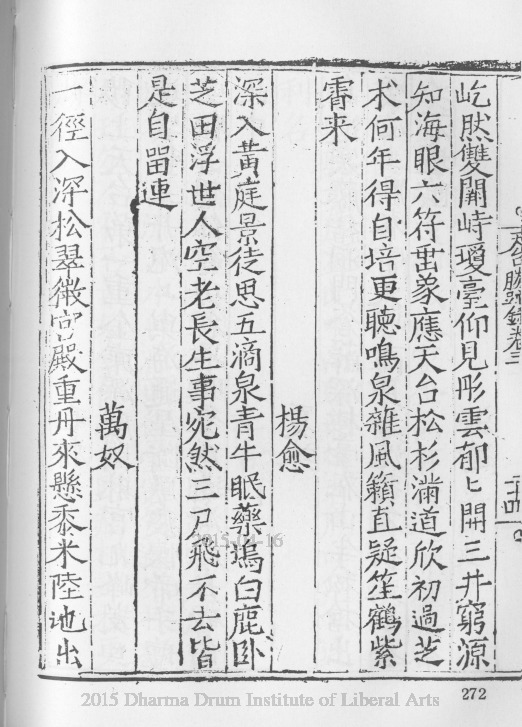 天台勝蹟錄卷三
二十四
屹然雙闕峙瓊臺仰見彤雲郁匕開三井窮源
知海眼六符畱象應天台松杉滿道欣初過芝
朮何年得自培更聴鳴泉雜風籟直疑笙鶴紫
霄来
楊愈
深入黃庭景徒思五滴泉青牛眠藥塢白鹿卧
芝田浮世人空老長生事宛然三尸飛不去皆
是自畱連
萬奴
一徑入深松翠微宫嚴重丹來懸黍米陸地出
2015-04-16
2015 Dharma Drum Institute of Liberal Arts
272